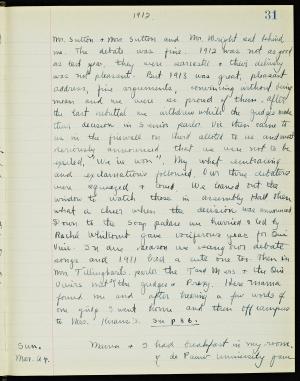 1912.
31
Mr. Sutton + Mrs. Sutton and Mr. Wright sat behind
me. The debate was fine. 1912 was not as good
as last year, they were sarcastic + their delivery
was not pleasant. But 1913 was great, pleasant
address, fine arguments, convincing without being
mean and we were so proud of them. After
the last rebuttal we withdrew while the judges made
their decision in Senior parlor. We then came to
us in the
and
announced that we were not to be
excited, "We've won". My what embracing
and exclamations followed. Our three debaters
were squeezed + loved. We leaned out the
window to watch those in assembly Hall then
what a cheer when the decision was announced
Down to the Soap palace we hurried + led by
Rachel Whitcomb gave vociferous yeas for Qui
Vive. In due season we sang our debate
songs and 1911 had a cute one too. Then in
Mrs. Tillinghast's parlor the T and M ers + the Qui
Vivers met the Judges + Prexy. Here Mama
found me and after hearing a few words of
one judge I went home and then off campus
to Mrs. Evans's. See p 86.
Sun.
Mar. 24.
Mama + I had breakfast in my room.
of de Pauw University gave